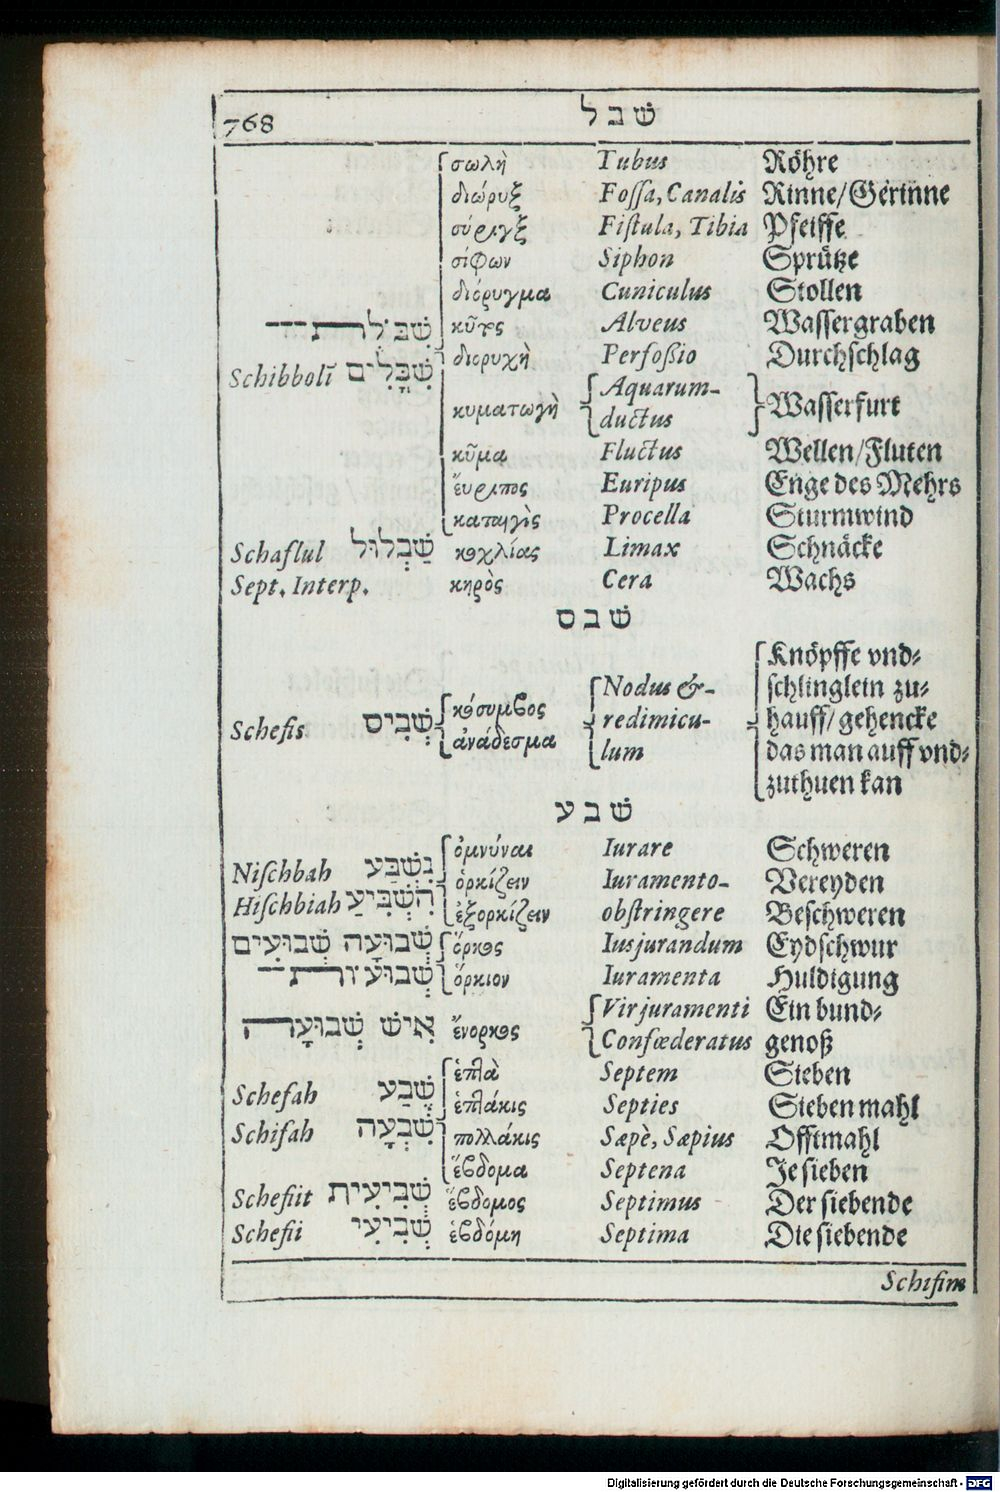 768 שׁבל
σωλὴ Tubus Röhre
διώρυξ Foſſa, Canalis Rinne/Gerinne
σύριγξ Fiſtula, Tibia Pfeiffe
σίφων Siphon Sprütze
διόρυγμα Cuniculus Stollen
Alveus Waſſergraben
διορυχὴ Perfoßio Durchſchlag
Schibbolī שִׁבֳּלִים
Aquarum-
κυματωγὴ Waſſerfurt
ductus
κῦμα Fluctus Wellen/Fluten
ἔυριπος Euripus Enge des Mehrs
καταιγὶς Procella Sturmwind
Schaflul שַׁבְלוּל κοχλίας Limax Schnäcke
Sept. Interp. κηρὸς Cera Wachs
שׁבס
Knöpffe vnd⸗
Nodus &- ſchlinglein zu⸗
κόσυμβος
Schefis שְׁבִיס redimicu- hauff/gehencke
ἀνάδεσμα
lum das man auff vnd⸗
zuthuen kan
שׁבע
ὀμνύναι Iurare Schweren
Niſchbah נִשְׁבַּע ὁρκίζειν Iuramento- Vereyden
Hiſchbiah הִשְׁבִּיעַ ἐξορκίζειν obſtringere Beſchweren
שְׁבוּעָה שְׁבוּעִים ὅρκος Iusjurandum Eydſchwur
ὅρκιον Iuramenta Huldigung
Virjuramenti Ein bund⸗
אִישׁ שְׁבוּעָה ἔνορκος
Confœderatus genoß
ἑπτὰ Septem Sieben
Schefah שֶׁבַע ἑπτάκις Septies Sieben mahl
Schifah שִׁבְעָה πολλάκις Sæpè, Sæpius Offtmahl
ἕβδομα Septena Je ſieben
Schefiit שְׁבִיעִית ἕβδομος Septimus Der ſiebende
Schefii שְׁבִיעִי ἑβδόμη Septima Die ſiebende
Schifim
Digitalisierung gefördert durch die Deutsche Forschungsgemeinschaft - DFG